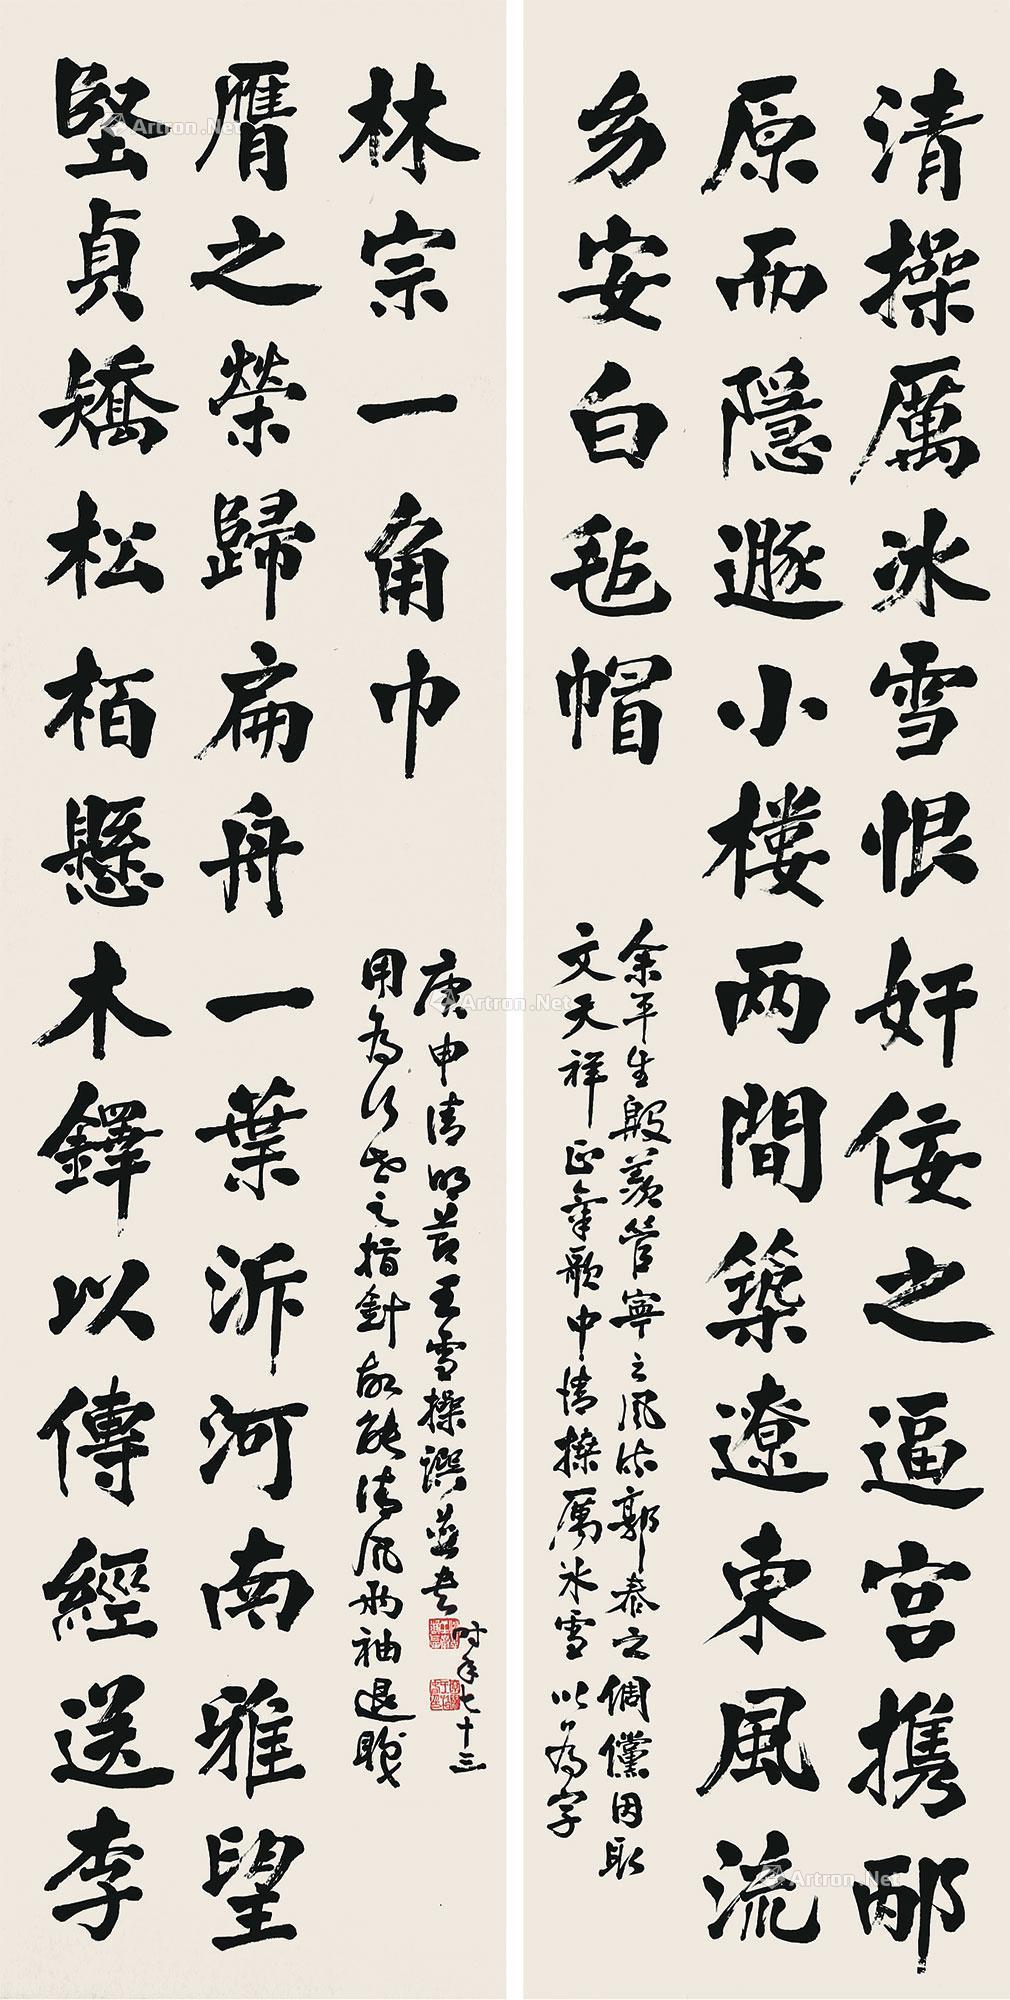 清操厲冰雪恨奸佞之逼宮携邴
原而隱遯小楼两間築遼東風流
幼安白毡帽
余平生殷羨管寧之風流郭泰之倜儻因取
文天祥正氣歌中清操厲冰雪以為字
堅貞矯松栢懸木鐸以傳經送李
膺之榮歸扁舟一葉泝河南雅望
林宗一角巾
用為行世之指針故能清風兩袖退職
庚申清明节王雪操譔並书
时年七十三
Artron.Net
Artron.Net
Artron.Net